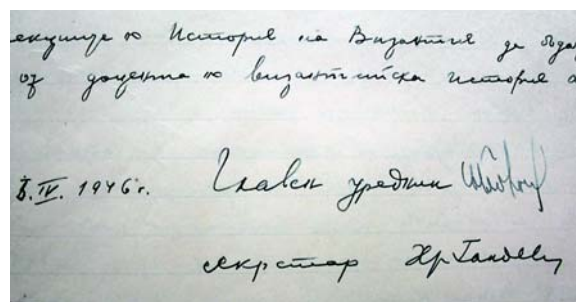 лекциите по История на Византия да бъда
от доцента по византийска история
5.IV.1946 г. Главен уредник
секретар Хр. Гандев